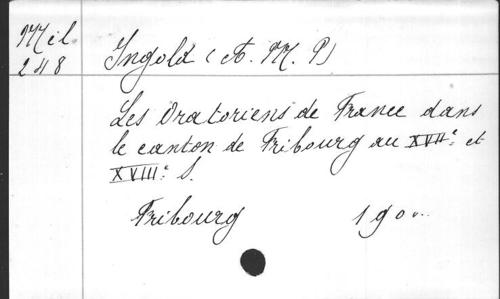 Mél.
248
Ingold (A. M. P)
Les Oratoriens de France dans
le canton de Fribourg au XVIIe. et
XVIIIe. S.
Fribourg 1900..